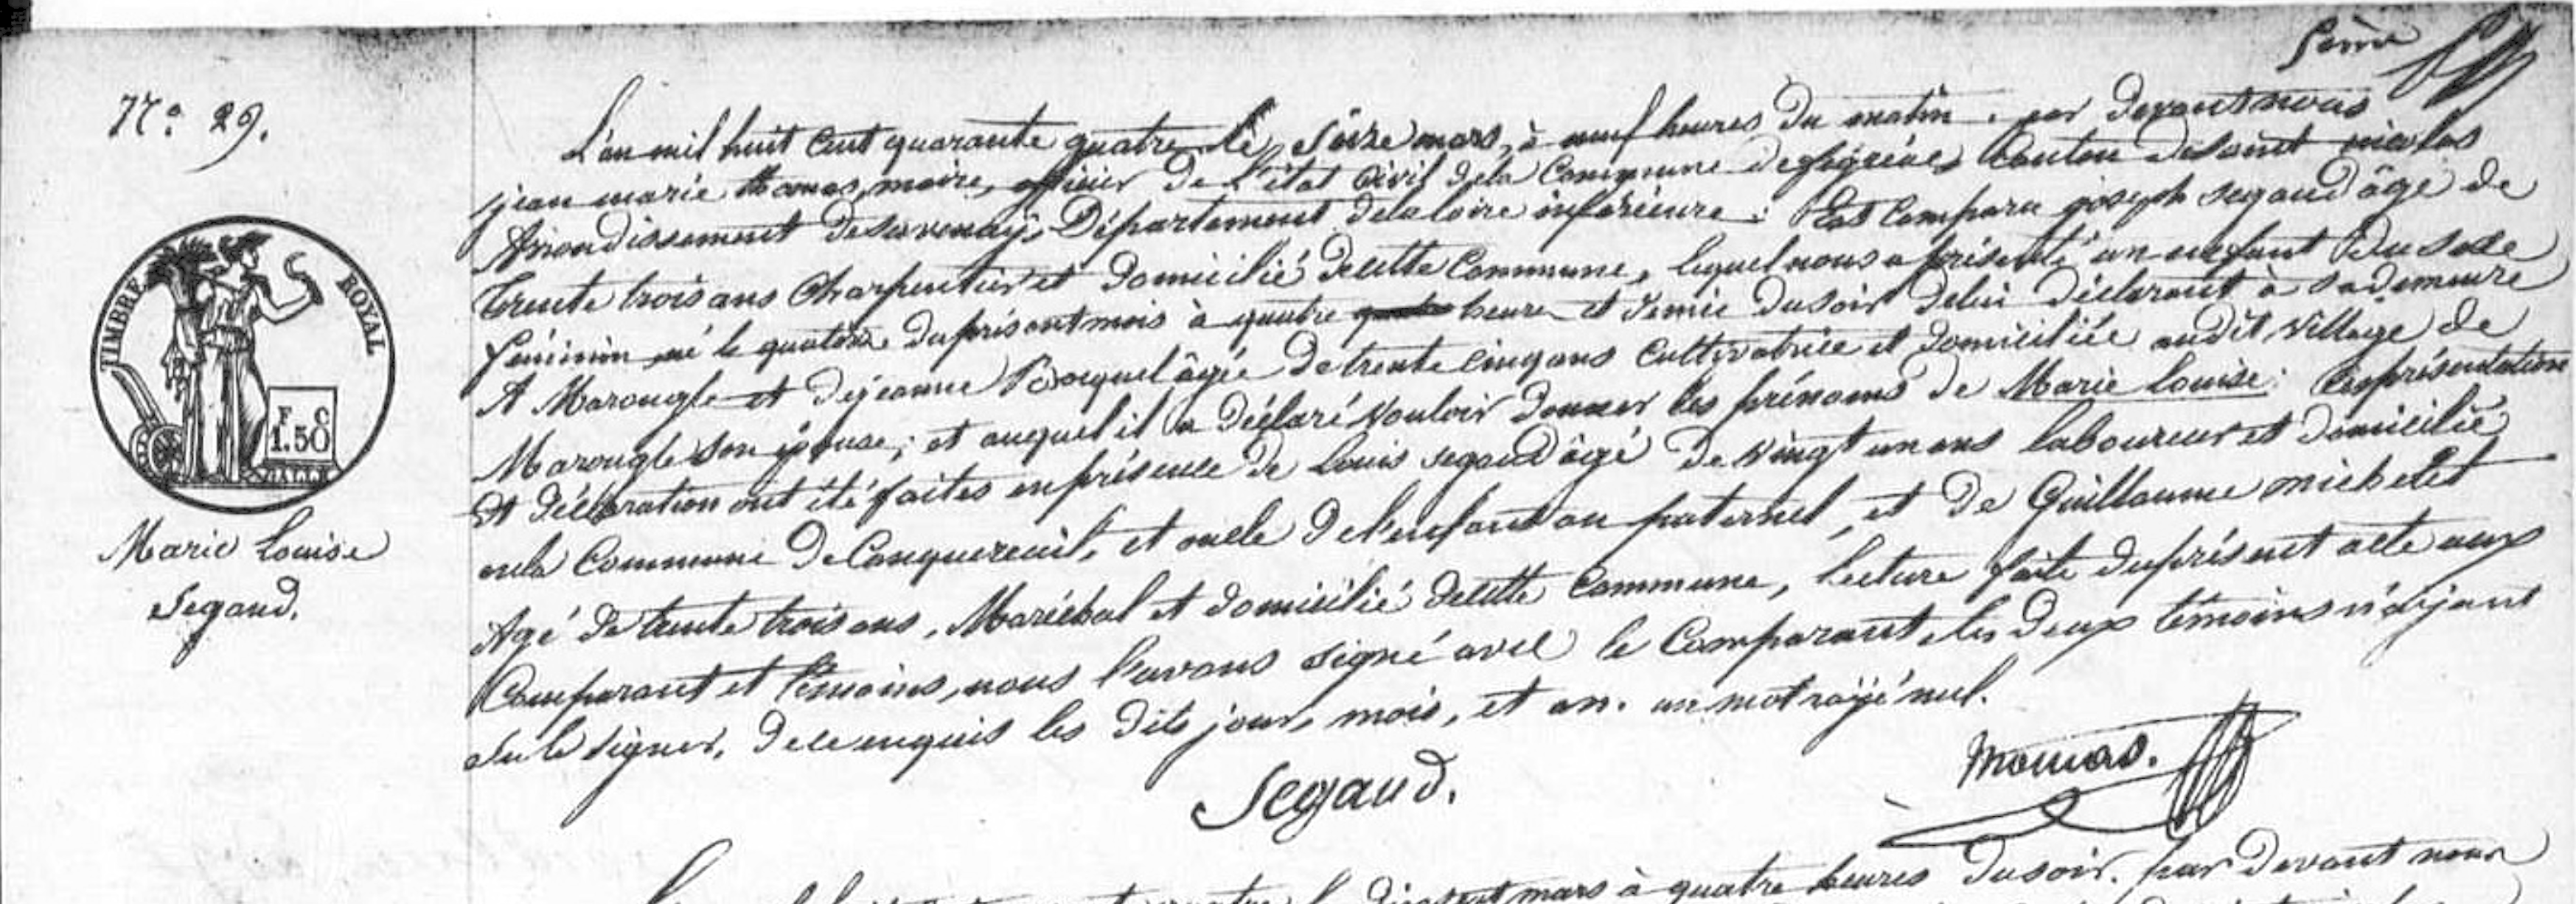 5ème
N° 29.
L'an mil huit cent quarante quatre le Seize mars, à neuf heures du matin, par devant nous
jean marie thomas, maire, officier de l'état Civil de la Commune de Canton de Saint nicolas
Arrondissement de Savenay, Département de la loire inférieure : Est Comparu joseph segaud âgé de
trente trois ans Charpentier et Domicilié de cette Commune, lequel nous a présenté un enfant du sexe
féminin né le quatorze du présent mois à quatre heure et demie du soir de lui déclarant à sa demeure
A Marongle et de jeanne âgée de trente cinq ans Cultivatrice et Domiciliée audit Village de
Marongle son épouse ; et auquel il a déclaré vouloir donner les prénoms de Marie Louise : les présentation
et déclaration ont été faites en présence de Louis segaud âgé de vingt un ans laboureur et domicilié
en la Commune de Conquereuil, et oncle de l'enfant au paternel, et de Guillaume michelet
Agé de trente trois ans, Maréchal et domicilié de cette Commune, lecture faite du présent acte aux
Comparant et témoins, nous l'avons signé avec le Comparant, les deux témoins n'ayant
su le signer, de ce enquis les dits jour, mois, et an. un mot rayé nul.
TIMBRE ROYAL
F C
1.50
Marie Louise
Segaud.
Segaud.
Thomas.
mars à quatre heures du soir. par devant nous